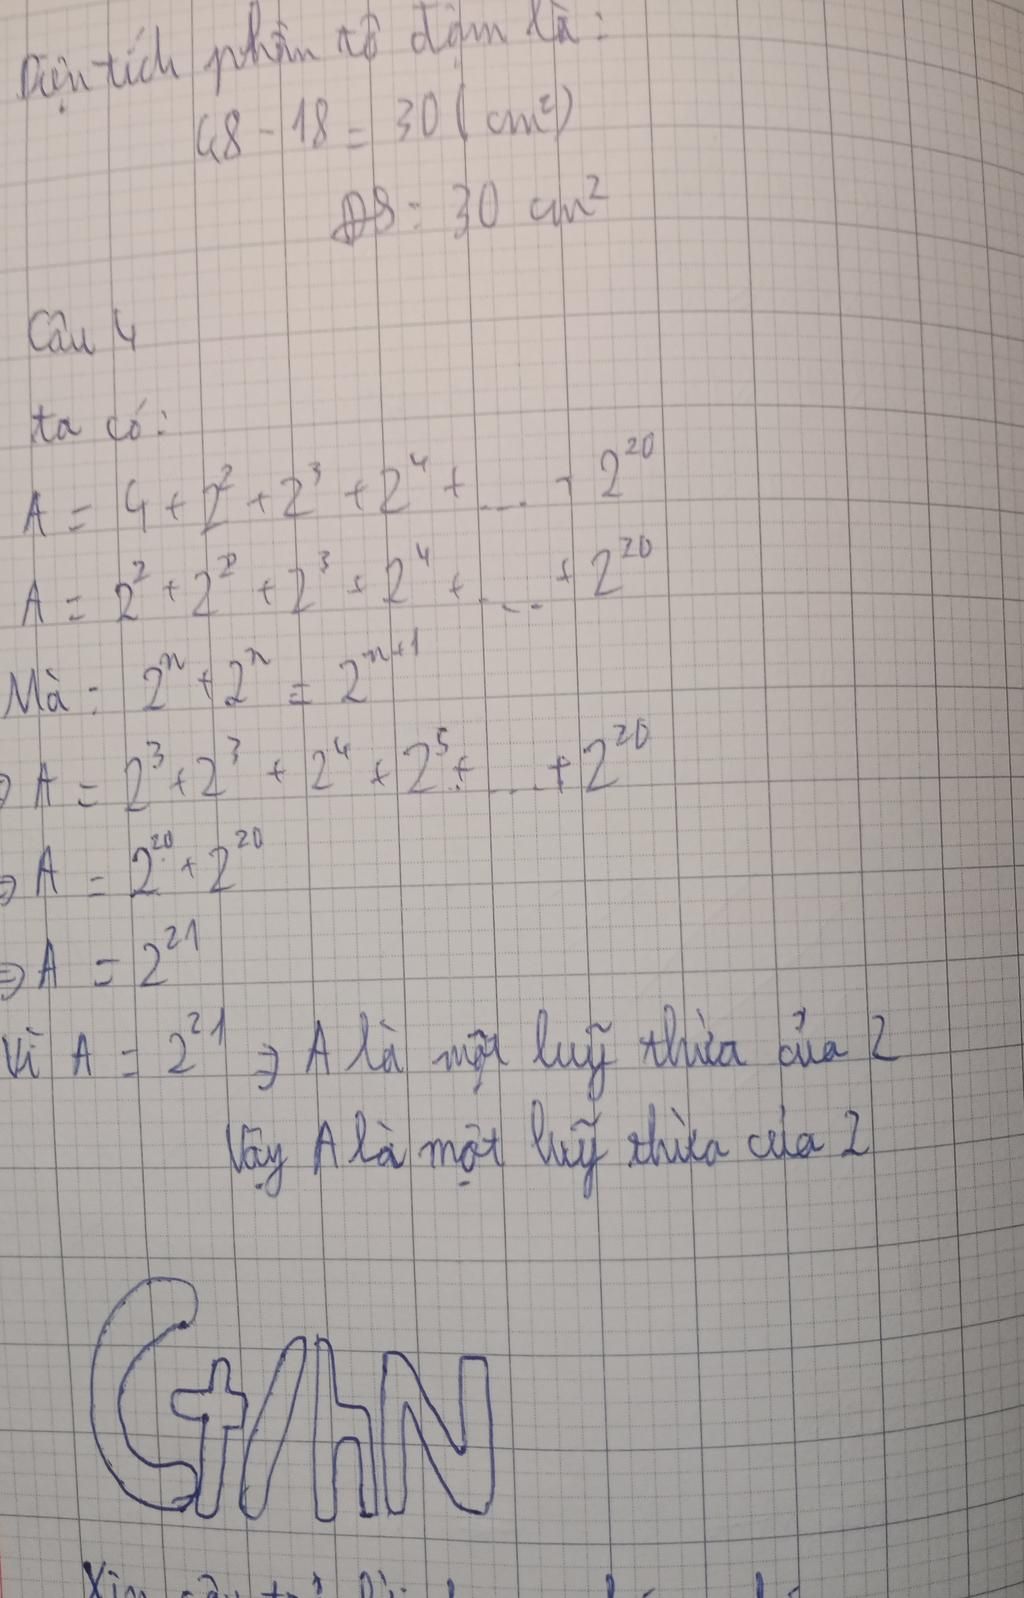 Diện tích phần tô đậm là:
48 - 18 = 30 (cm²)
ĐS: 30 cm²
Câu 4
ta có:
A = 4 + 2² + 2³ + 2⁴ + .... + 2²⁰
A = 2² + 2² + 2³ + 2⁴ + .... + 2²⁰
Mà: 2ⁿ + 2ⁿ = 2ⁿ⁺¹
⇒ A = 2³ + 2³ + 2⁴ + 2⁵ + .... + 2²⁰
⇒ A = 2²⁰ + 2²⁰
⇒ A = 2²¹
Vì A = 2²¹ ⇒ A là một luỹ thừa của 2
Vậy A là một luỹ thừa của 2